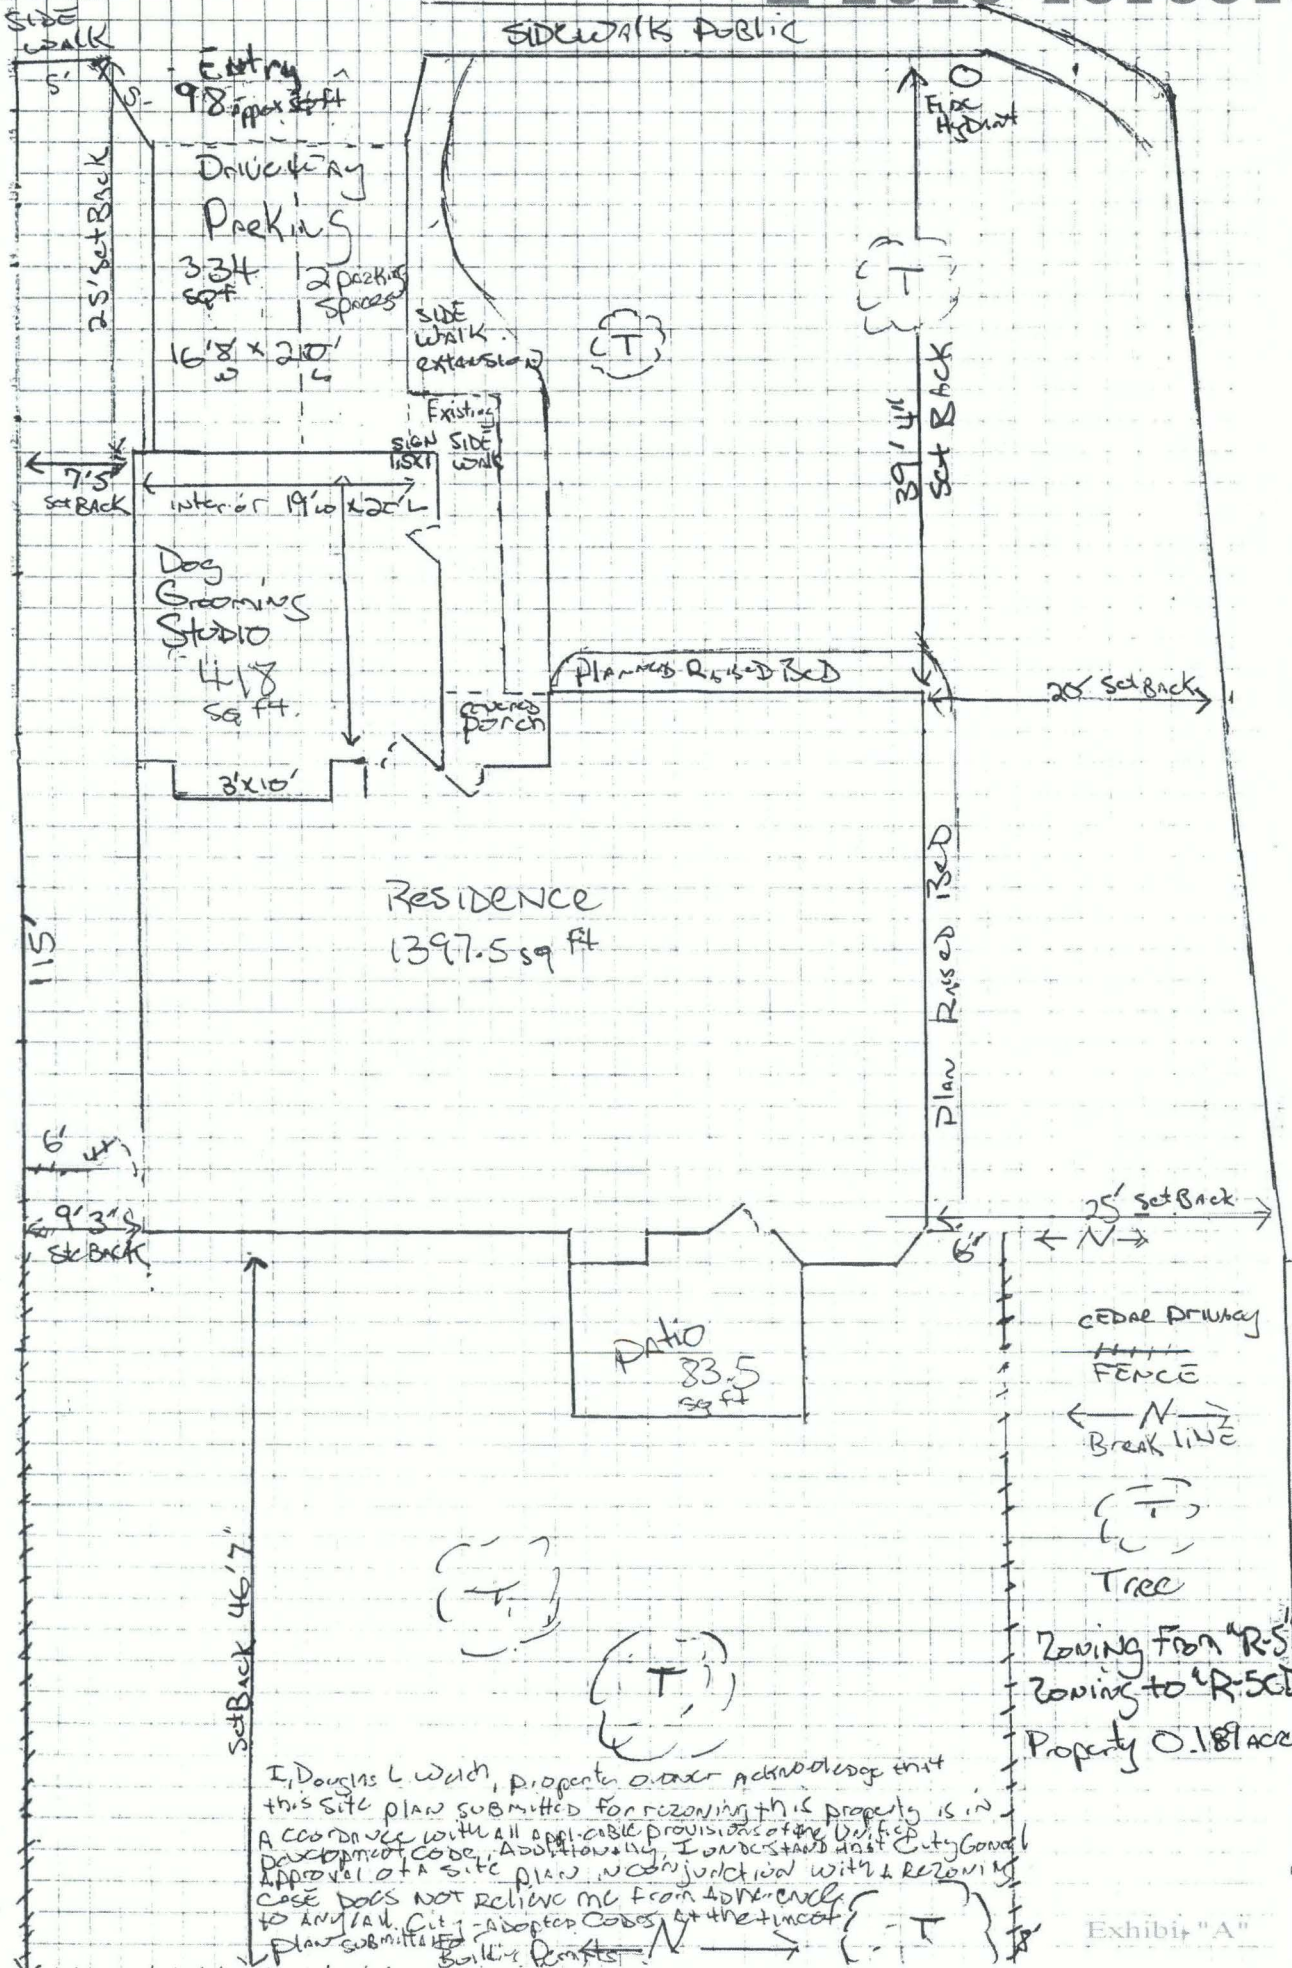 SIDE
WALK
SIDEWALK PUBLIC
5'
5'
Entry
98 approx sq ft
Fire
HyDrant
25' Set BACK
DriveWAy
Parking
334
sqft
2 parking
spaces
16'8" x 20'
W L
SIDE
WALK
extansion
T
T
39' 4" Set BACK
Existing
SIDE
WALK
SIGN
1.5X1
7'5"
Set BACK
interior 19'W x 22' L
Dog
Grooming
STUDIO
418
SQ ft.
3'x10'
covered
porch
PLANNED RAISED BED
20' Set BACK
RESIDENCE
1397.5 sq ft
115'
PLAN RAISED BED
6'
4'
9' 3"
BACK
25' Set BACK
6'
N
PATIO
83.5
sq ft
CEDAR PRIVACY
FENCE
N
Break LINE
T
Tree
SetBACK 46'7"
T
T
Zoning from "R-5"
Zoning to "R-5CD
Property 0.189 ACRE
I, Douglas L Welch, property owner Acknowledge that
this site plan submitted for rezoning this property is in
Accordance with All Applicable provisions of the Unified
Development Code. Additionally, I understand that City Council
Approval of a Site Plan in conjunction with a Rezoning
CASE DOES NOT Relieve me from Adherence
to ANY/ALL City-Adopted Codes At the time of
plan submittal for
Building Permits.
N
T
8'
Exhibit "A"